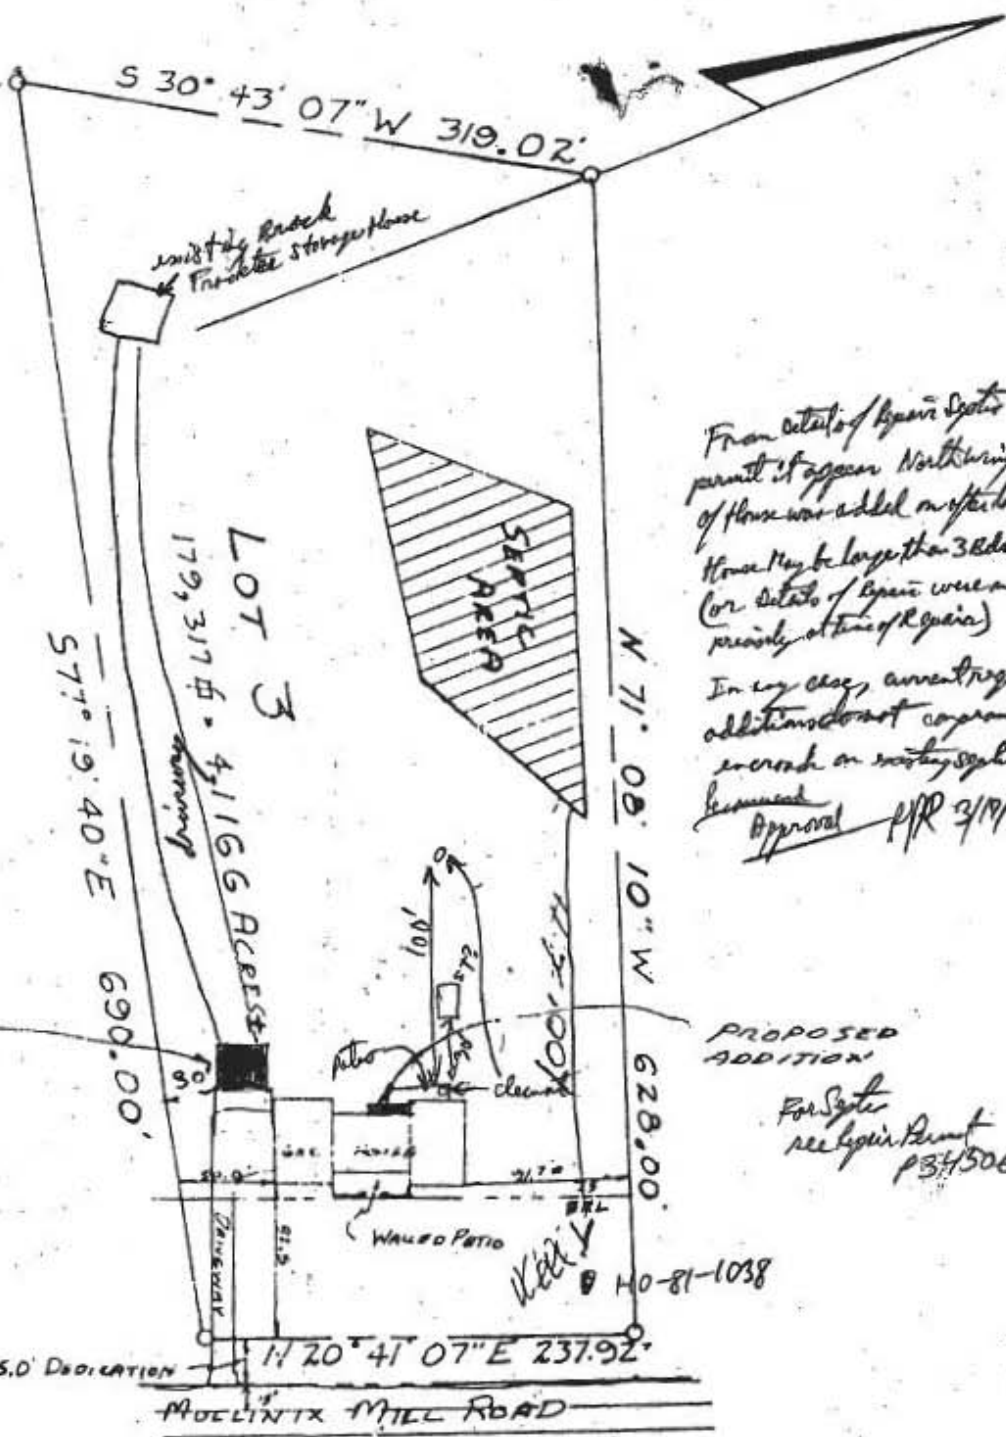 S 30° 43' 07" W 319.02'
existing
Storage House
LOT 3
179,317 ⌗ = 4.1166 ACRES±
driveway
SEPTIC
AREA
N 71° 08' 10" W 628.00'
S 77° 19' 40" E 690.00'
From details of Repair Septic
permit it appears North wing
of House was added on after
House May be larger than 3 Bdr
(or details of Repair were
at time of Repair)
In any case, current
additions do not
encroach on existing septic
Recommend
Approval 3/19/
100'
100'
patio
cleanout
PROPOSED
ADDITION
For Septic
see Repair Permit
P34506
GAR.
HOUSE
BRL
WALLED PATIO
DRIVEWAY
Well
HO-81-1038
N 20° 41' 07" E 237.92'
5.0' DEDICATION
MULLINIX MILL ROAD